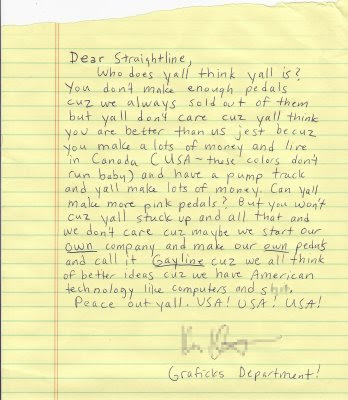 Dear Straightline,
Who does yall think yall is?
You don't make enough pedals
cuz we always sold out of them
but yall don't care cuz yall think
you are better than us jest becuz
you make a lots of money and live
in Canada (USA~these colors don't
run baby) and have a pump track
and yall make lots of money. Can yall
make more pink pedals? But you won't
cuz yall stuck up and all that and
we don't care cuz maybe we start our
own company and make our own pedals
and call it Gayline cuz we all think
of better ideas cuz we have American
technology like computers and s
Peace out yall. USA! USA! USA!
Graficks Department!